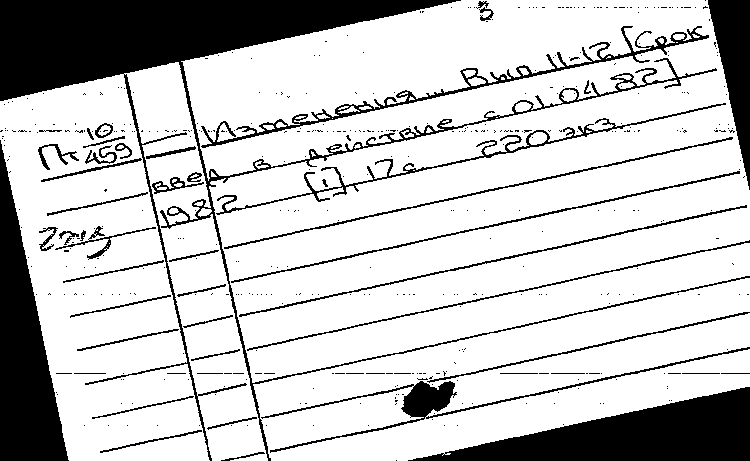 3
Пт 10/459 — Изменения... Вып 11-12 [Срок
введ в действие с 01.04.82].
1982 [1], 17с 220 экз.
2 экз